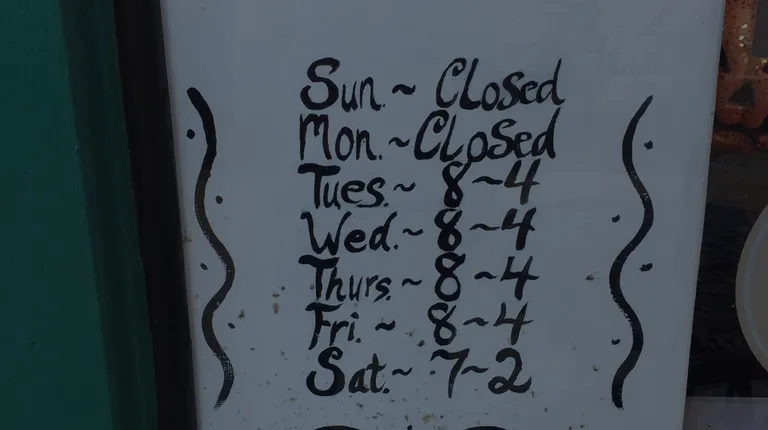 Sun. ~ Closed
Mon. ~ Closed
Tues. ~ 8~4
Wed. ~ 8~4
Thurs. ~ 8~4
Fri. ~ 8~4
Sat. ~ 7~2